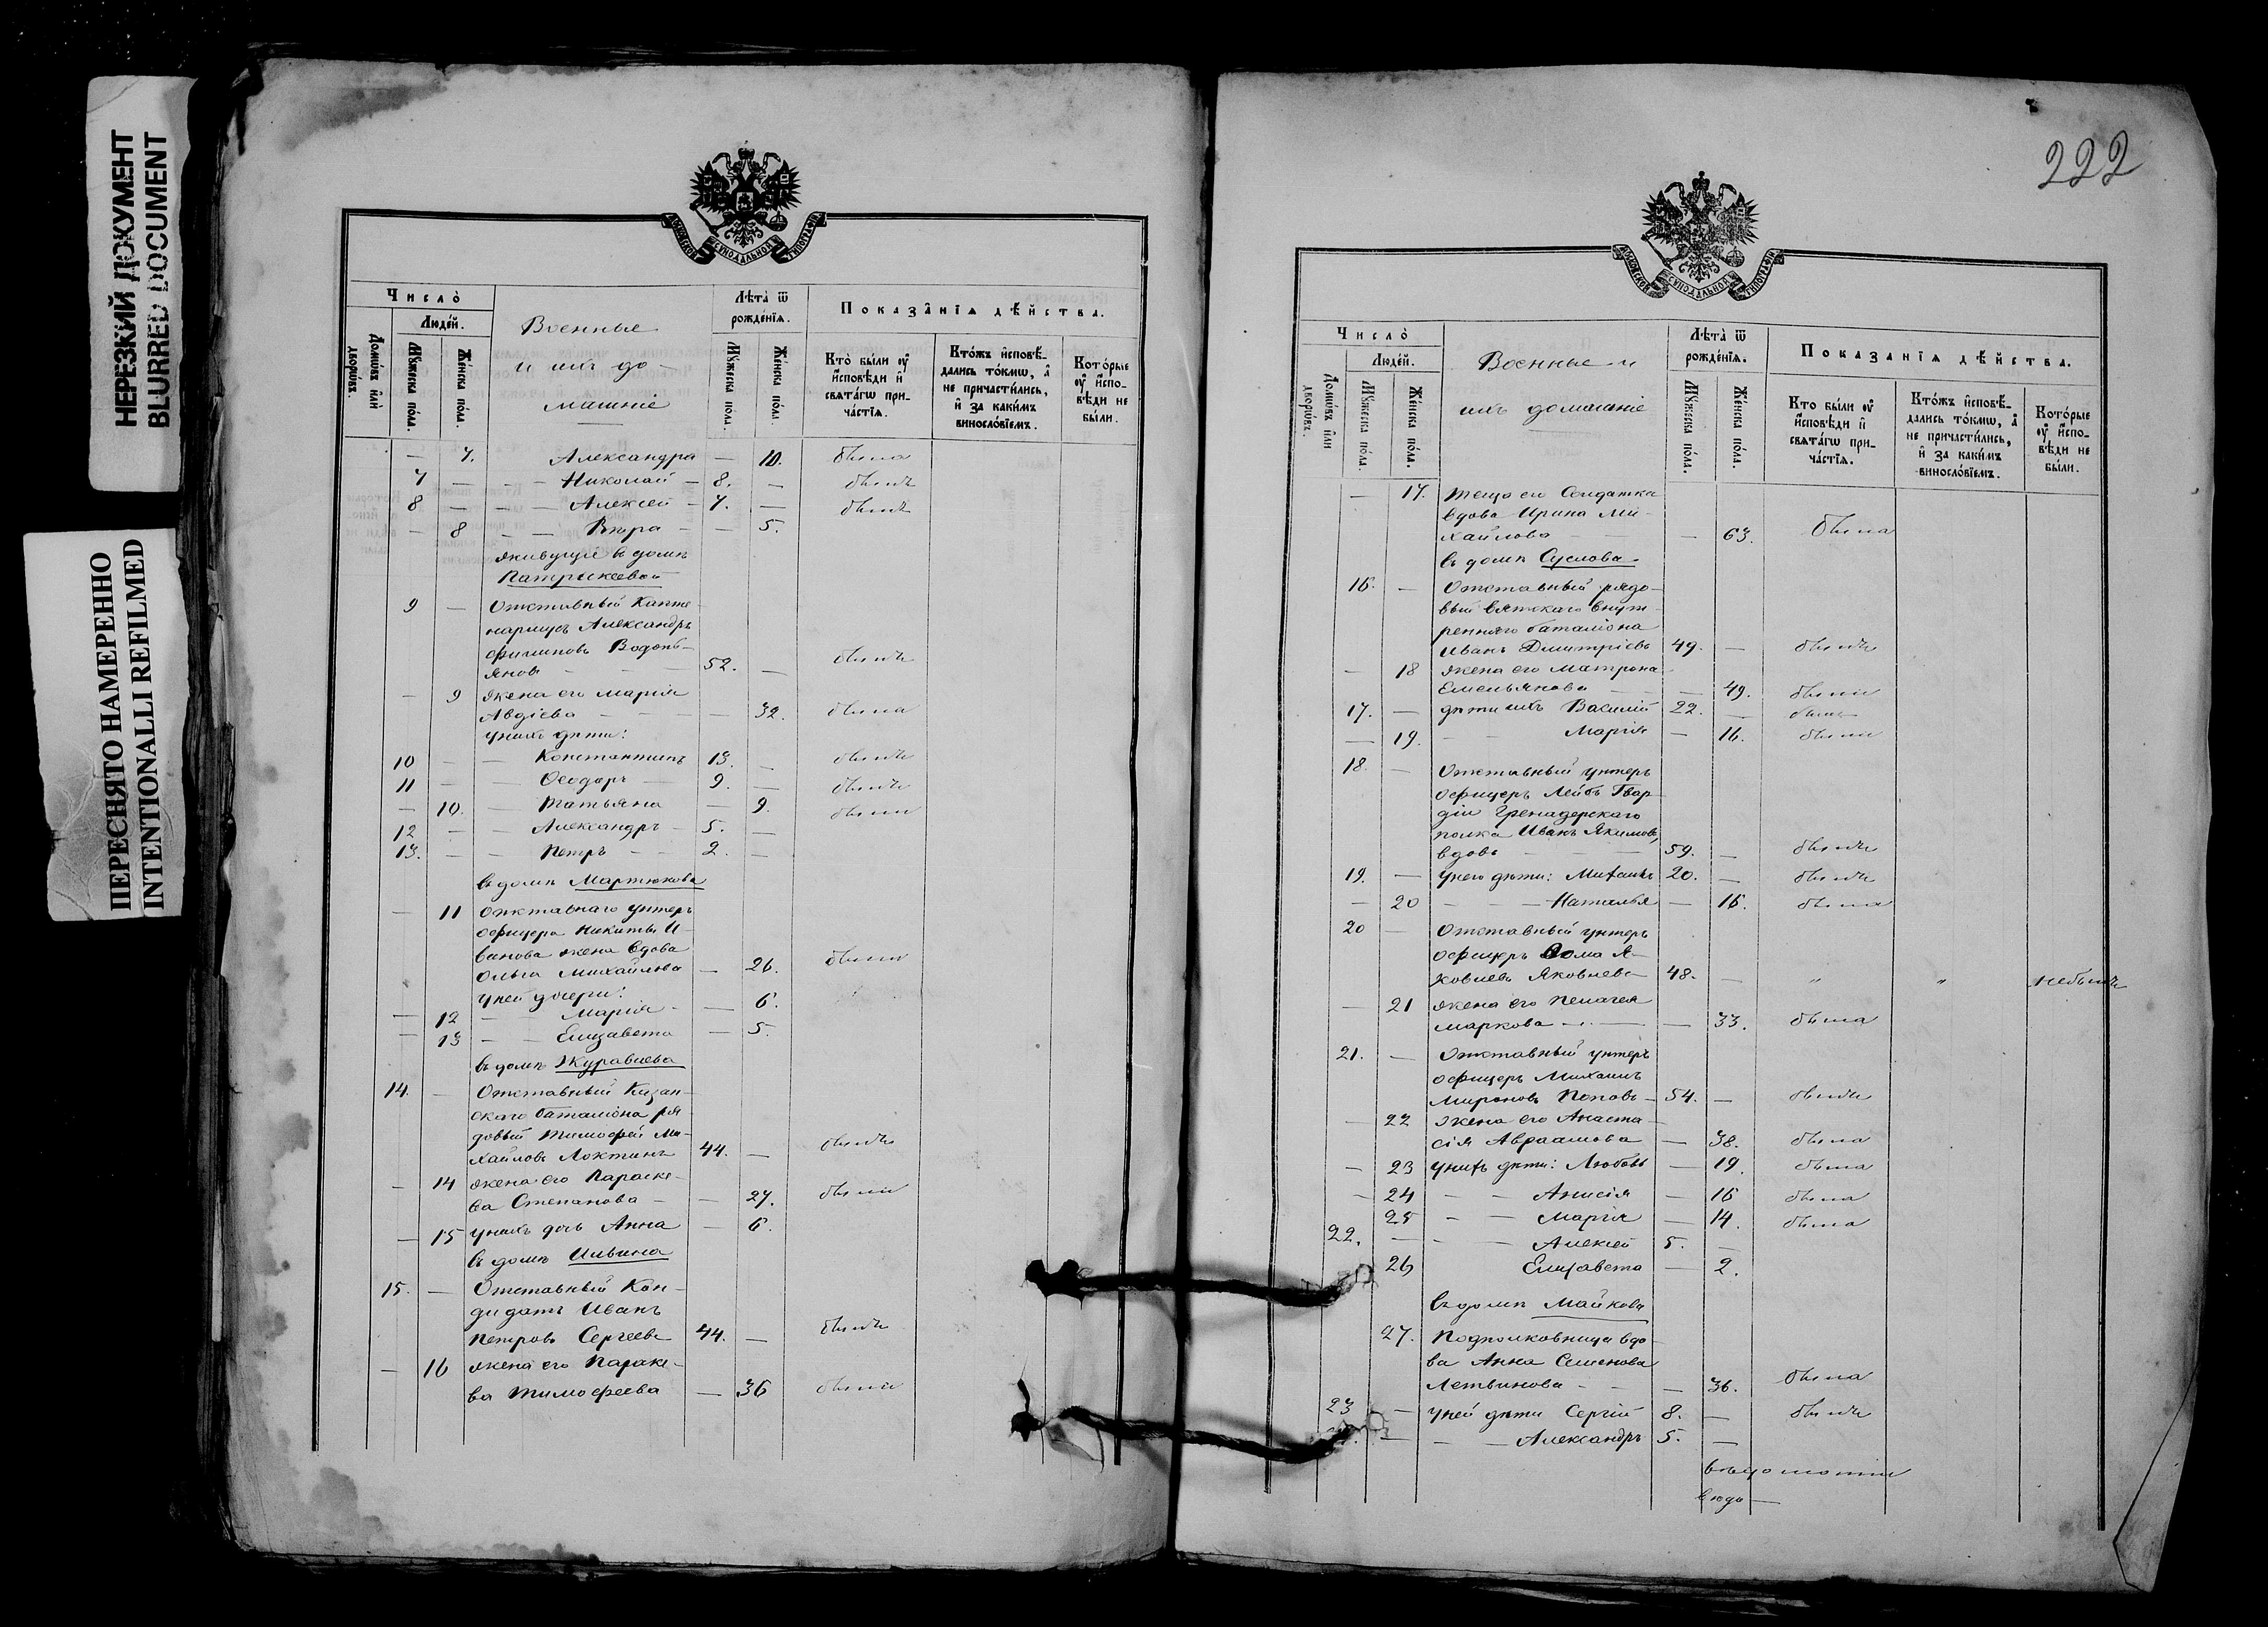 НЕРЕЗКИЙ ДОКУМЕНТ
BLURRED DOCUMENT
ПЕРЕСНЯТО НАМЕРЕННО
INTENTIONALLI REFILMED
МОСКОВСКОЙ СѴНОДАЛЬНОЙ ТИПОГРАФІИ
Число̀
Люде́й.
Домѡ́въ и҆лѝ дворѡ́въ.
Мꙋ́жеска по́ла.
Же́нска по́ла.
Военные
и ихъ до-
машніе
Лѣта̀ ѿ рожде́нїѧ.
Мꙋ́жеска по́ла.
Же́нска по́ла.
Показа̑нїѧ дѣ́йства.
Кто̀ бы́ли ᲂу҆ и҆́сповѣди и҆ свѧта́гѡ прича́стїѧ.
Кто́жъ и҆сповѣ́дались то́кмѡ, а҆ не причасти́лись, и҆ за каки́мъ винословїемъ.
Кото́рые ᲂу҆ и҆́сповѣди не бы́ли.
— 7. Александра — 10. была
7 — — Николай — 8. — былъ
8 — — Алексей — 7. — былъ
— 8 — — Вѣра — — 5.
живущіе въ домѣ
Патрикеевой
9 — Отставный Капте-
нармусъ Александръ
Филиповъ Водопь-
яновъ — 52. — былъ
— 9 жена его Марія
Авдіева — — — 32. была
у нихъ дѣти:
10 — — Константинъ 13. — былъ
11 — — Ѳеодоръ — 9. — былъ
— 10. — Татьяна — 9. была
12 — — Александръ — 5. —
13. — — Петръ — — 2. —
въ домѣ Мартюкова
— 11 Отставнаго унтеръ
офицера Никиты И-
ванова жена вдова
Ольга Михайлова — 26. была
у ней дочери:
— 12 — Марія — — 6.
— 13 — — Елизавета — 5.
въ домѣ Журавлева
14. — Отставный Казан-
скаго баталіона ря-
довый Тимофей Ми-
хайловъ Локтинъ 44. — былъ
— 14 жена его Параске-
ва Степанова — — 27. была
— 15 у нихъ дочь Анна — 6.
въ домѣ Ильина
15. — Отставный Кан-
дидатъ Иванъ
Петровъ Сергеевъ 44. — былъ
— 16 жена его Параке-
ва Тимофеева — 36 была
222
МОСКОВСКОЙ СѴНОДАЛЬНОЙ ТИПОГРАФІИ
Число̀
Люде́й.
Домѡ́въ и҆лѝ дворѡ́въ.
Мꙋ́жеска по́ла.
Же́нска по́ла.
Военные и
ихъ домашніе
Лѣта̀ ѿ рожде́нїѧ.
Мꙋ́жеска по́ла.
Же́нска по́ла.
Показа̑нїѧ дѣ́йства.
Кто̀ бы́ли ᲂу҆ и҆́сповѣди и҆ свѧта́гѡ прича́стїѧ.
Кто́жъ и҆сповѣ́дались то́кмѡ, а҆ не причасти́лись, и҆ за каки́мъ винословїемъ.
Кото́рые ᲂу҆ и҆́сповѣди не бы́ли.
— 17. теща его Солдатка
вдова Ирина Ми-
хайлова — — 63. была
въ домѣ Суслова
16. — Отставный рядо-
вый вятскаго внут-
ренняго баталіона
Иванъ Дмитріевъ 49. — былъ
— 18 жена его Матрона
Емельянова — — 49. была
17. — дѣти ихъ Василій 22. — былъ
— 19. — Марія — 16. была
18. — Отставный унтеръ
офицеръ Лейбъ Гвар-
діи Гренадерскаго
полка Иванъ Якимовъ,
вдовъ — — 59. — былъ
19. — у него дѣти: Михаилъ 20. — былъ
— 20 — — Наталья — 16. была
20 — Отставный унтеръ
офицеръ Ѳома Я-
ковлевъ Яковлевъ 48. — " " небылъ
— 21 жена его Пелагея
Маркова — — 33. была
21. — Отставный унтеръ
офицеръ Михаилъ
Мироновъ Поповъ — 54. — былъ
— 22 жена его Анаста-
сія Авраамова — 38. была
— 23 у нихъ дѣти: Любовь — 19. была
— 24 — — Анисія — 16 была
25 — — Марія — 14. была
22. — — — Алексей 5. —
26 Елизавета — 2.
въ домѣ Майкова
27. Подполковница вдо-
ва Анна Семенова
Летвинова — — — 36. была
23 — у ней дѣти Сергій 8. — былъ
— — — Александръ 5. —